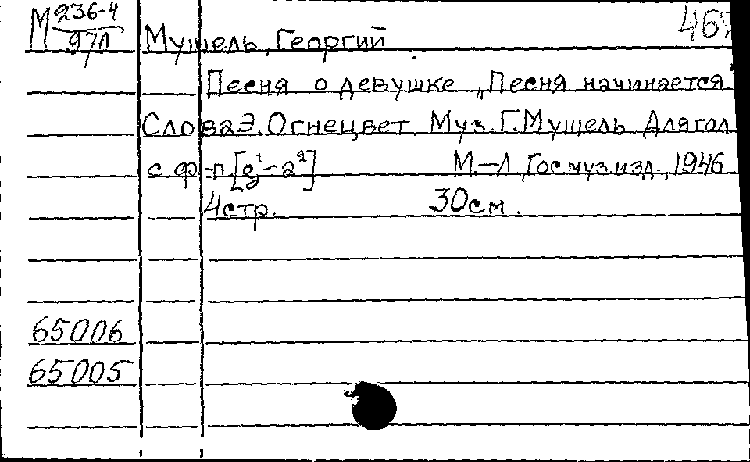 М 236-4 467
97л Мушель, Георгий
Песня о девушке „Песня начинается"
Слова Э. Огнецвет Муз. Г. Мушель Для гол.
с ф-п [g¹-a²] М.-Л, Госмузизд, 1946
4 стр. 30 см.
65006
65005